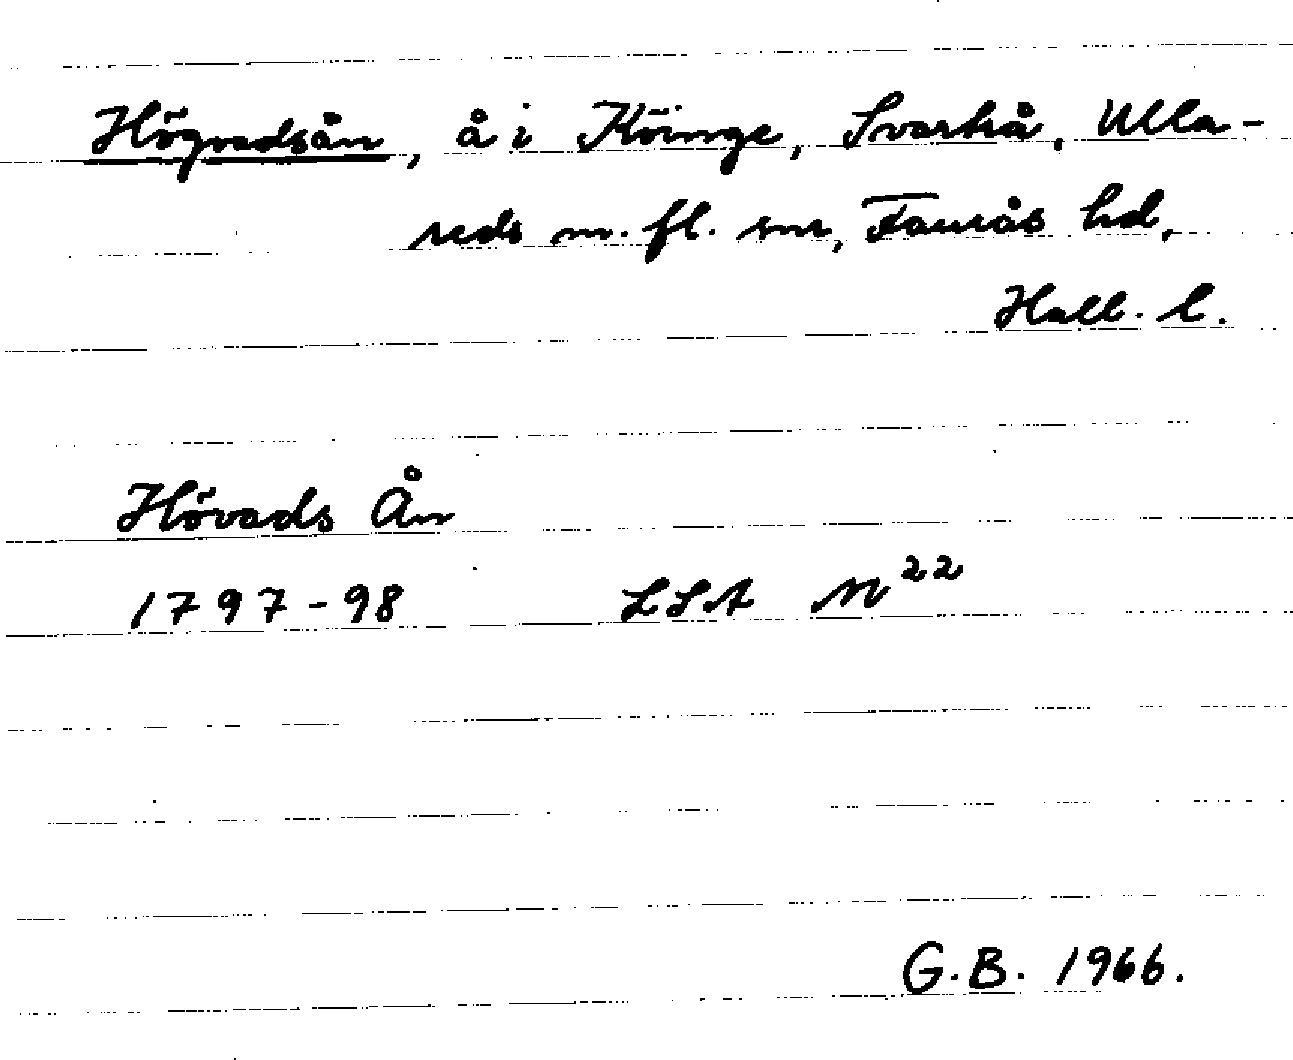 Högvadsån, å i Köinge, Svartrå, Ulla-
reds m. fl. snr, Faurås hd,
Hall. l.
Hövads Ån
1797-98 LSA N 22
G.B. 1966.